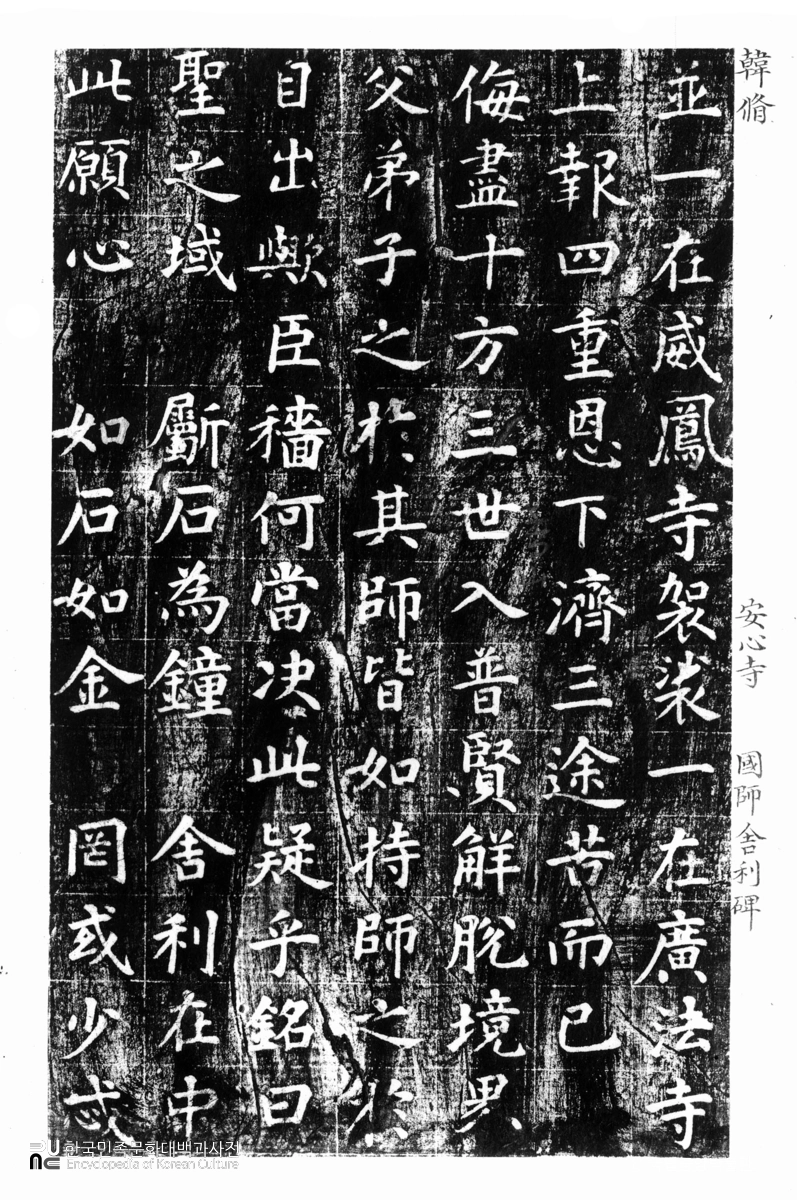 韓脩 安心寺 國師舍利碑
並一在威鳳寺袈裟一在廣法寺
上報四重恩下濟三途苦而已
侮盡十方三世入普賢解脫境界
父弟子之於其師皆如持師之於
自出歟臣穡何當决此疑乎銘曰
聖之域 斸石為鐘 舍利在中
此願心 如石如金 罔或少或
한국민족문화대백과사전
Encyclopedia of Korean Culture